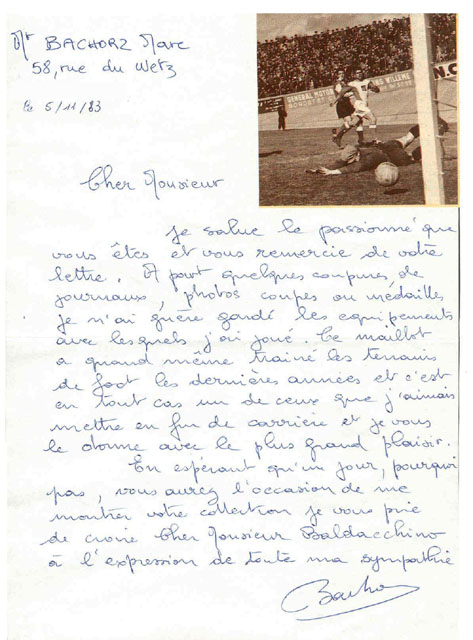 Mr BACHORZ Marc
58, rue du Wetz
le 5/11/83
GENERAL MOTOR
WILLEME
Cher Monsieur
Je salue le passionné que
vous êtes et vous remercie de votre
lettre. A part quelques coupures de
journaux, photos coupes ou médailles
je n'ai guère gardé les equipements
avec lesquels j'ai joué. Ce maillot
a quand même trainé les terrains
de foot les dernières années et c'est
en tout cas un de ceux que j'aimais
mettre en fin de carrière et je vous
le donne avec le plus grand plaisir.
En espérant qu'un jour, pourquoi
pas, vous aurez l'occasion de me
montrer votre collection je vous prie
de croire Cher Monsieur Baldacchino
à l'expression de toute ma sympathie